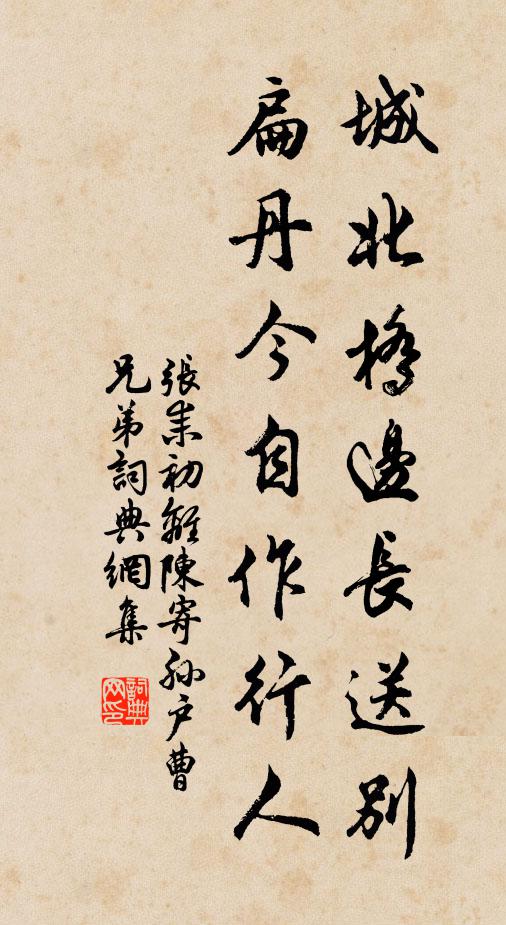 城北橋邊長送別
扁丹今自作行人
張耒初離陳寄孫户曹
兄弟詞典網集
詞典
网印